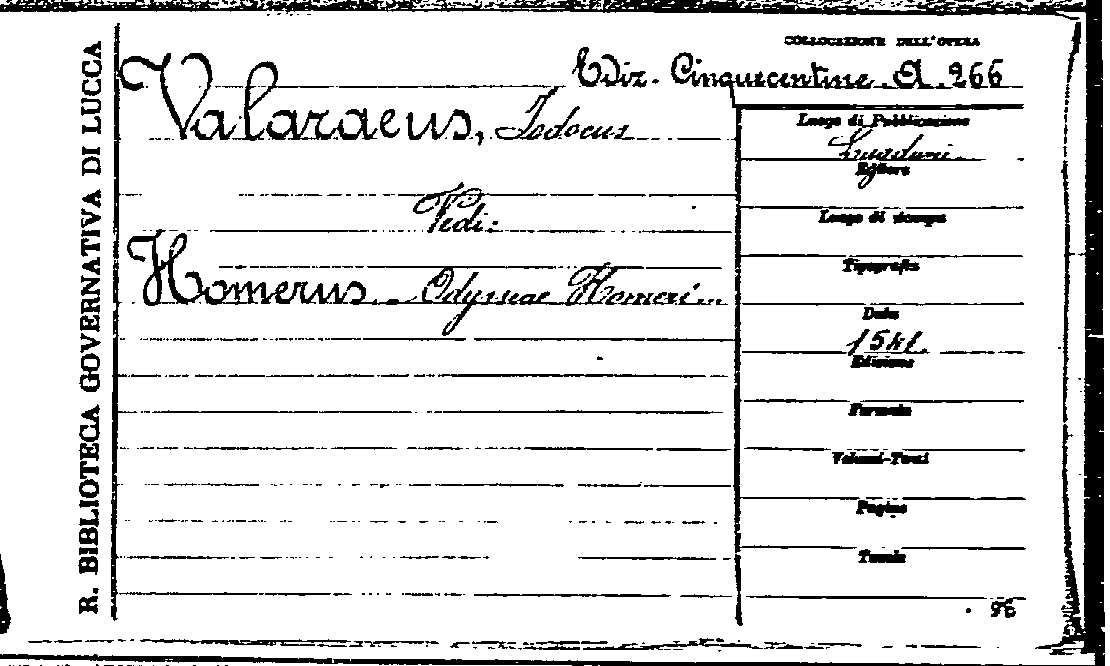 R. BIBLIOTECA GOVERNATIVA DI LUCCA
COLLOCAZIONE DELL'OPERA
Ediz. Cinquecentine. A. 266
Valaraeus, Iodocus
Vedi:
Homerus - Odysseae Homeri...
Luogo di Pubblicazione
Lugduni.
Editore
Luogo di stampa
Tipografia
Data
1541.
Edizione
Formato
Volumi-Tomi
Pagine
Tavole
96